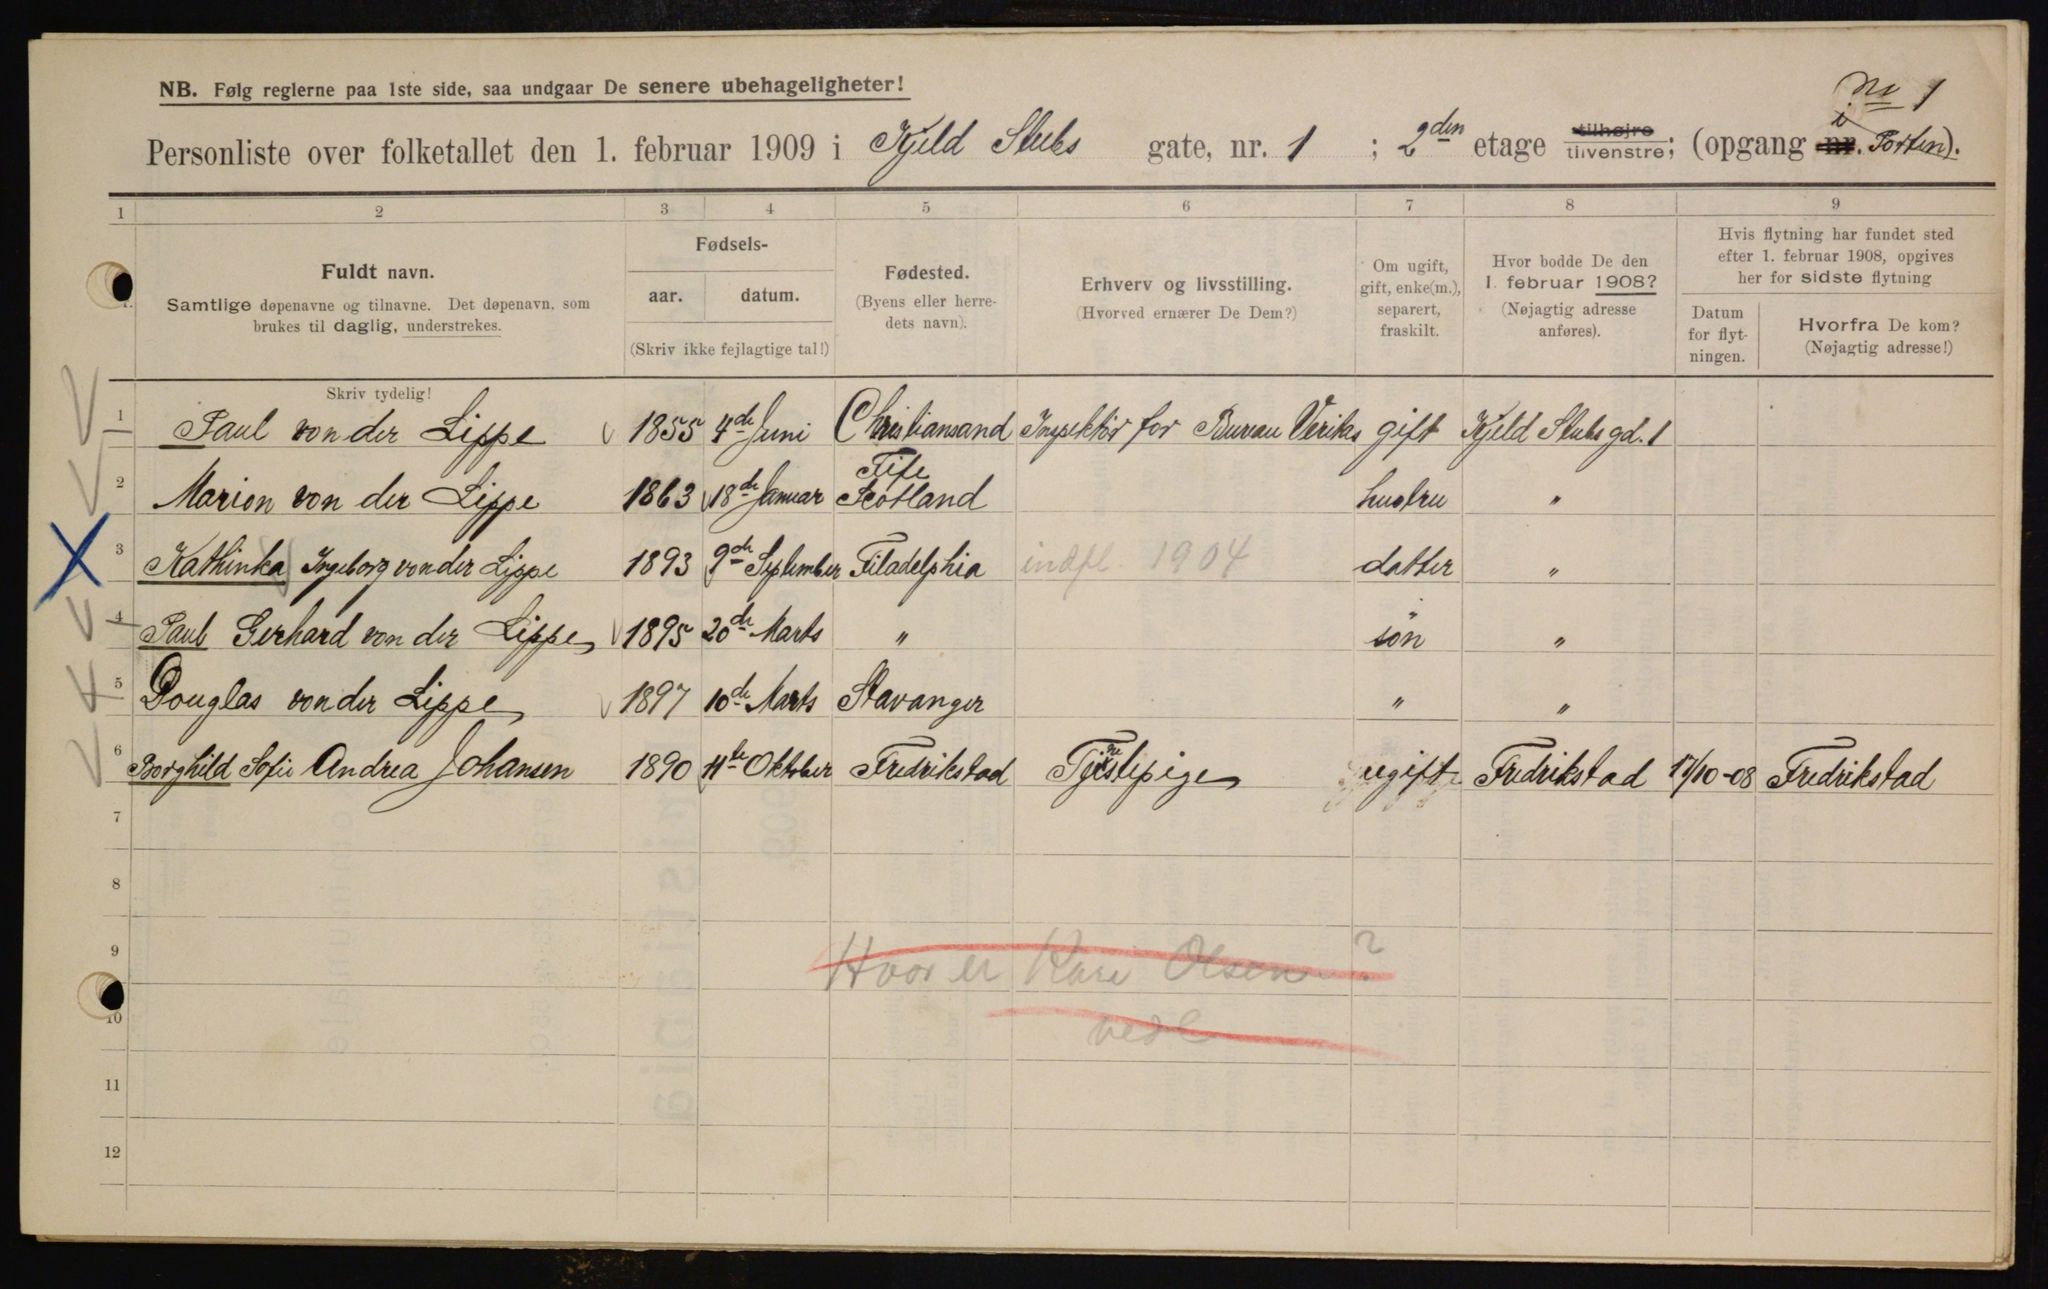 No 1
NB. Følg reglerne paa 1ste side, saa undgaar De senere ubehageligheter!
Personliste over folketallet den 1. februar 1909 i Kjeld Stubs gate, nr. 1 ; 2den etage tilhøjre tilvenstre; (opgang nr. i Porten).
1 2 3 4 5 6 7 8 9
Fuldt navn.
Samtlige døpenavne og tilnavne. Det døpenavn, som
brukes til daglig, understrekes.
Fødsels-
aar. datum.
(Skriv ikke fejlagtige tal!)
Fødested.
(Byens eller herre-
dets navn).
Erhverv og livsstilling.
(Hvorved ernærer De Dem?)
Om ugift,
gift, enke(m.),
separert,
fraskilt.
Hvor bodde De den
1. februar 1908?
(Nøjagtig adresse
anføres).
Hvis flytning har fundet sted
efter 1. februar 1908, opgives
her for sidste flytning
Datum
for flyt-
ningen.
Hvorfra De kom?
(Nøjagtig adresse!)
Skriv tydelig!
1 Paul von der Lippe 1855 4de Juni Christiansand Inspektör for Bureau Veritas gift Kjeld Stubs gd. 1
2 Marion von der Lippe 1863 18de Januar Fife Scotland hustru "
3 Kathinka Ingeborg von der Lippe 1893 9de September Filadelphia indfl. 1904 datter "
4 Paul Gerhard von der Lippe 1895 20de Marts " sön "
5 Douglas von der Lippe 1897 10de Marts Stavanger " "
6 Borghild Sofie Andrea Johansen 1890 11te Oktober Fredrikstad ugift Fredrikstad 17/10-08 Fredrikstad
7
8
9
Hvor er Kari Olsen?
10
11
12